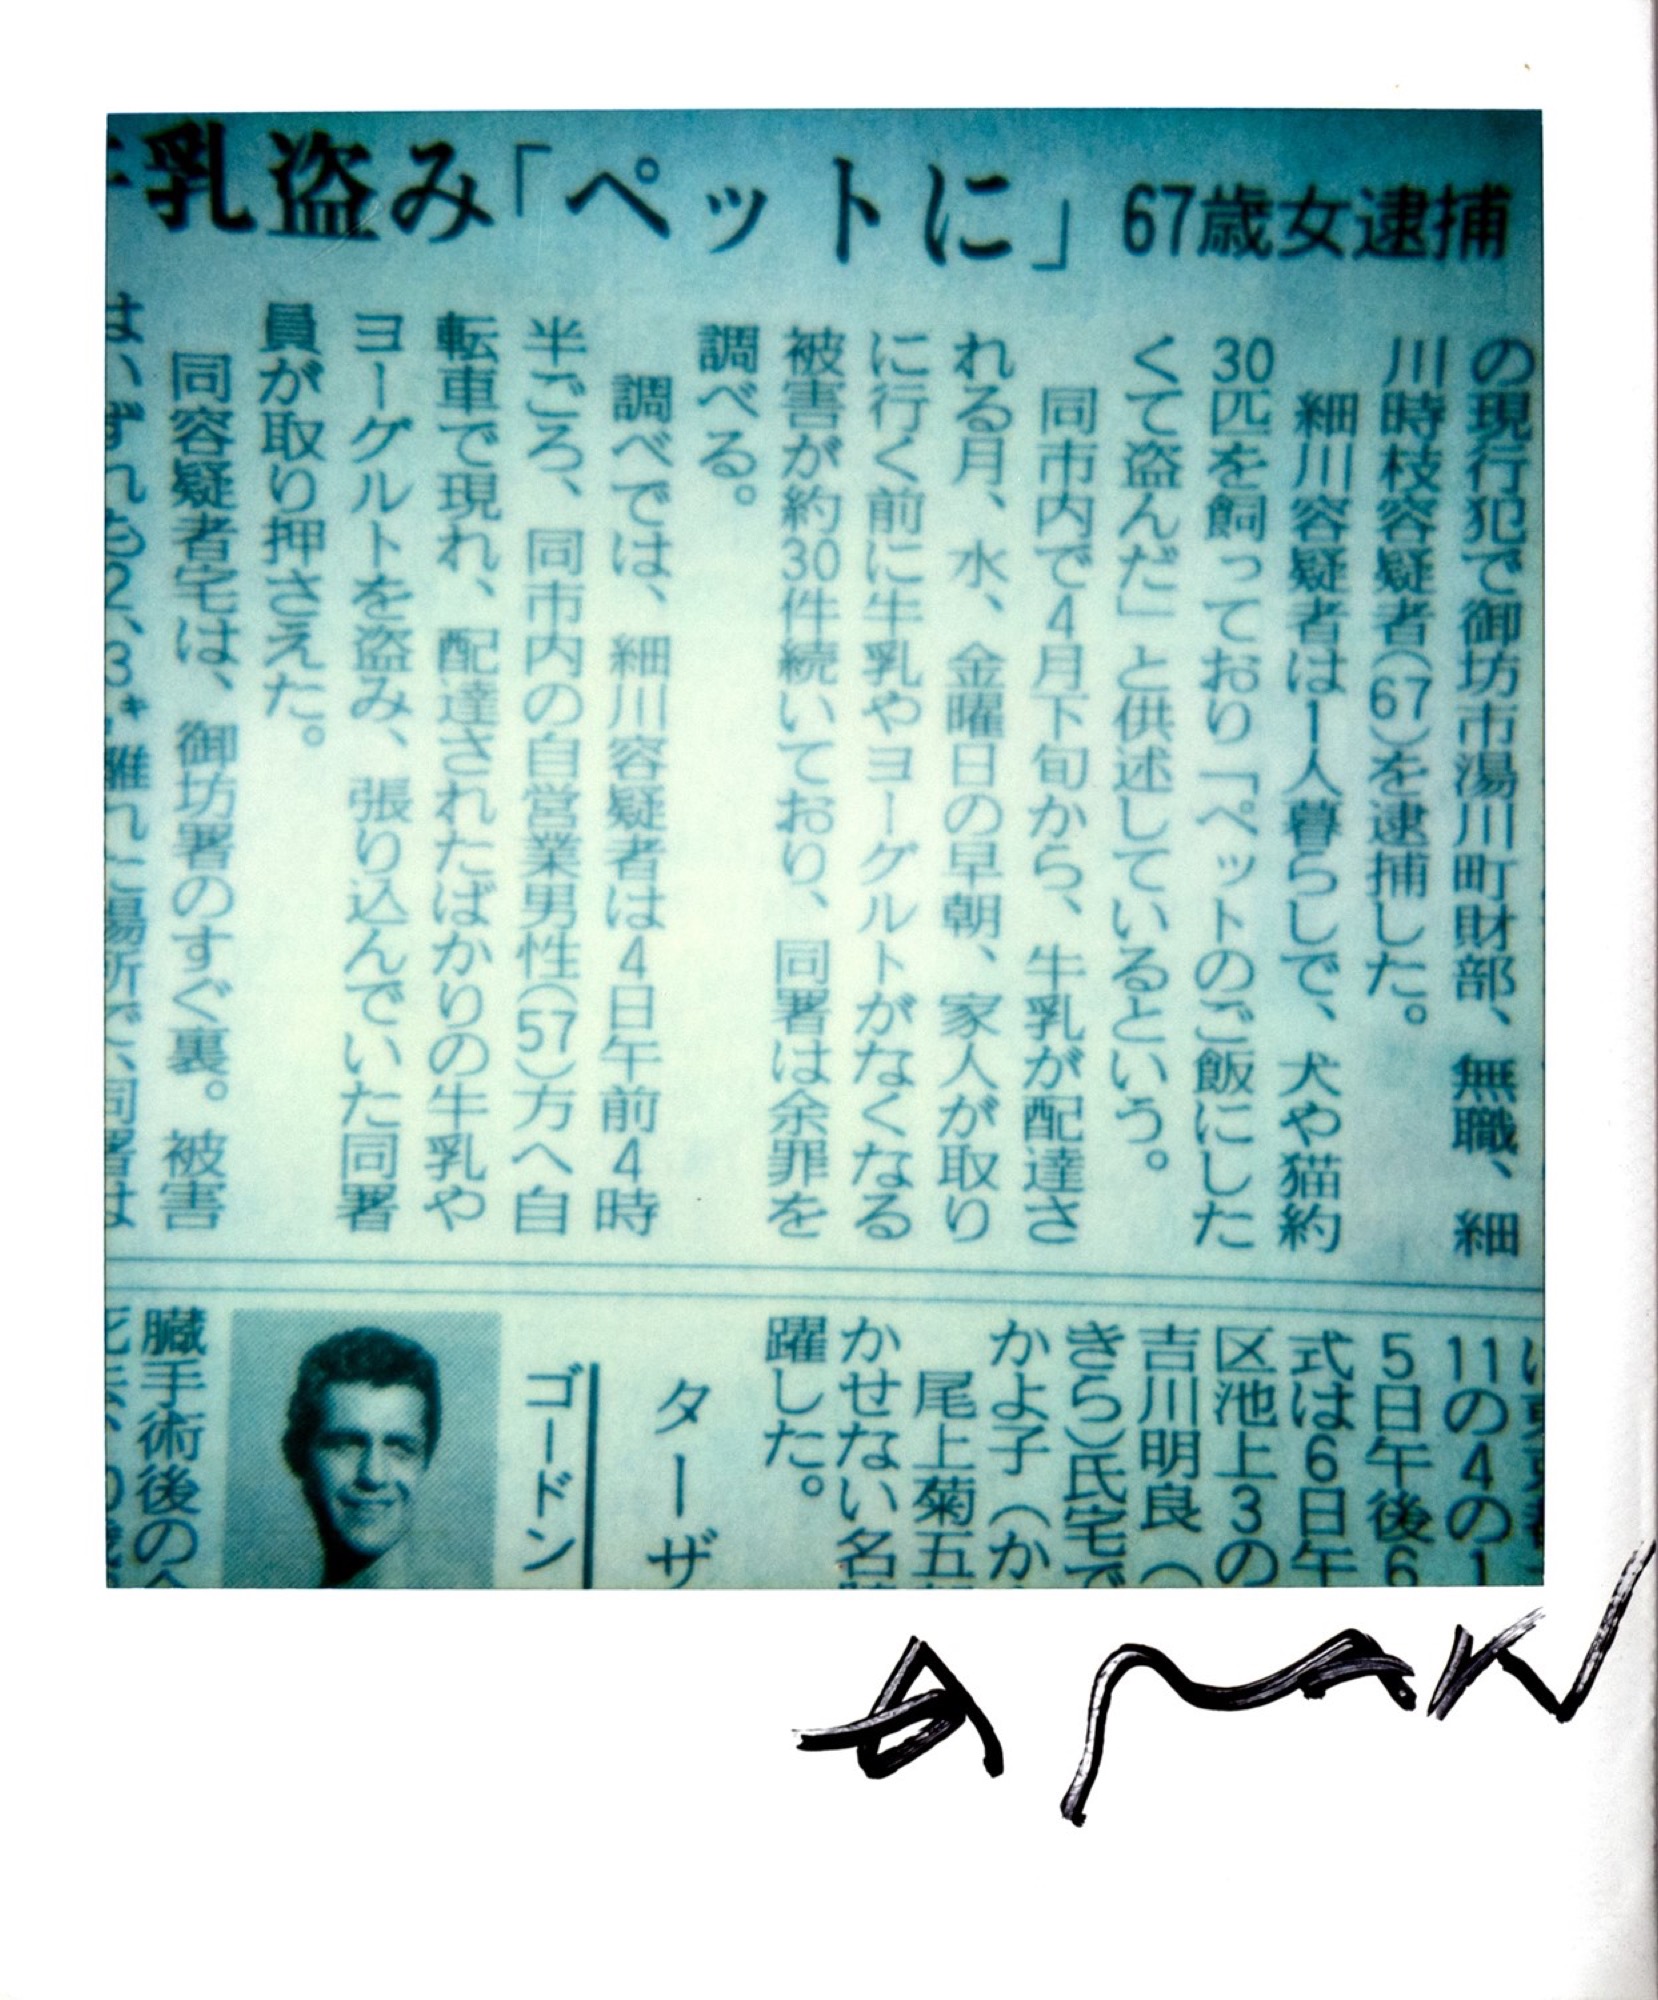 乳盗み「ペットに」67歳女逮捕
の現行犯で御坊市湯川町財部、無職、細
川時枝容疑者(67)を逮捕した。
細川容疑者は1人暮らしで、犬や猫約
30匹を飼っており「ペットのご飯にした
くて盗んだ」と供述しているという。
同市内で4月下旬から、牛乳が配達さ
れる月、水、金曜日の早朝、家人が取り
に行く前に牛乳やヨーグルトがなくなる
被害が約30件続いており、同署は余罪を
調べる。
調べでは、細川容疑者は4日午前4時
半ごろ、同市内の自営業男性(57)方へ自
転車で現れ、配達されたばかりの牛乳や
ヨーグルトを盗み、張り込んでいた同署
員が取り押さえた。
同容疑者宅は、御坊署のすぐ裏。被害
はいずれも2、3㌔離れた場所で、同署は
11の4の1
5日午後6
式は6日午
区池上3の
吉川明良(
きら)氏宅で
かよ子(か
尾上菊五
かせない名
躍した。
ターザ
ゴードン
臓手術後の
ARAKI